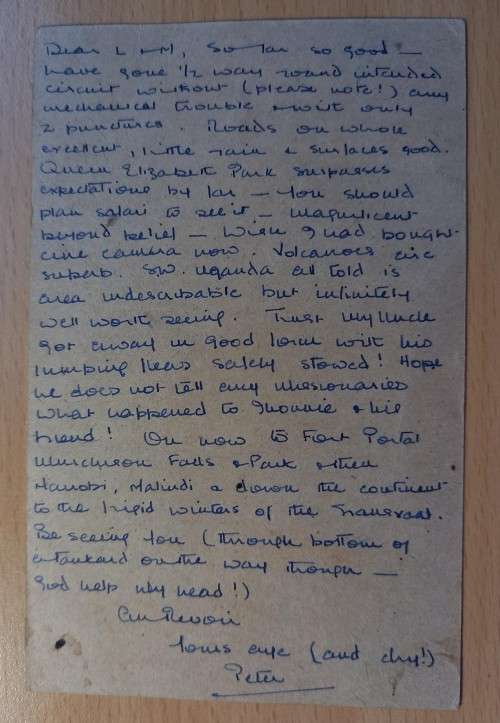 Dear L + M, So far so good —
have gone ½ way round intended
circuit without (please note!) any
mechanical trouble & with only
2 punctures. Roads on whole
excellent, little rain & surfaces good.
Queen Elizabeth Park surpasses
expectations by far — you should
plan safari to see it — magnificent
beyond belief — wish I had bought
cine camera now. Volcanoes are
superb. S.W. Uganda all told is
area indescribable but infinitely
well worth seeing. Trust my Uncle
got away in good form with his
jumping fleas safely stowed! Hope
he does not tell any missionaries
what happened to & his
friend! On now to Fort Portal
Murchison Falls & Park & then
Nairobi, Malindi & down the continent
to the frigid winters of the Transvaal.
Be seeing you (through bottom of
a tankard on the way though —
God help my head!)
Au Revoir
Yours aye (and dry!)
Peter